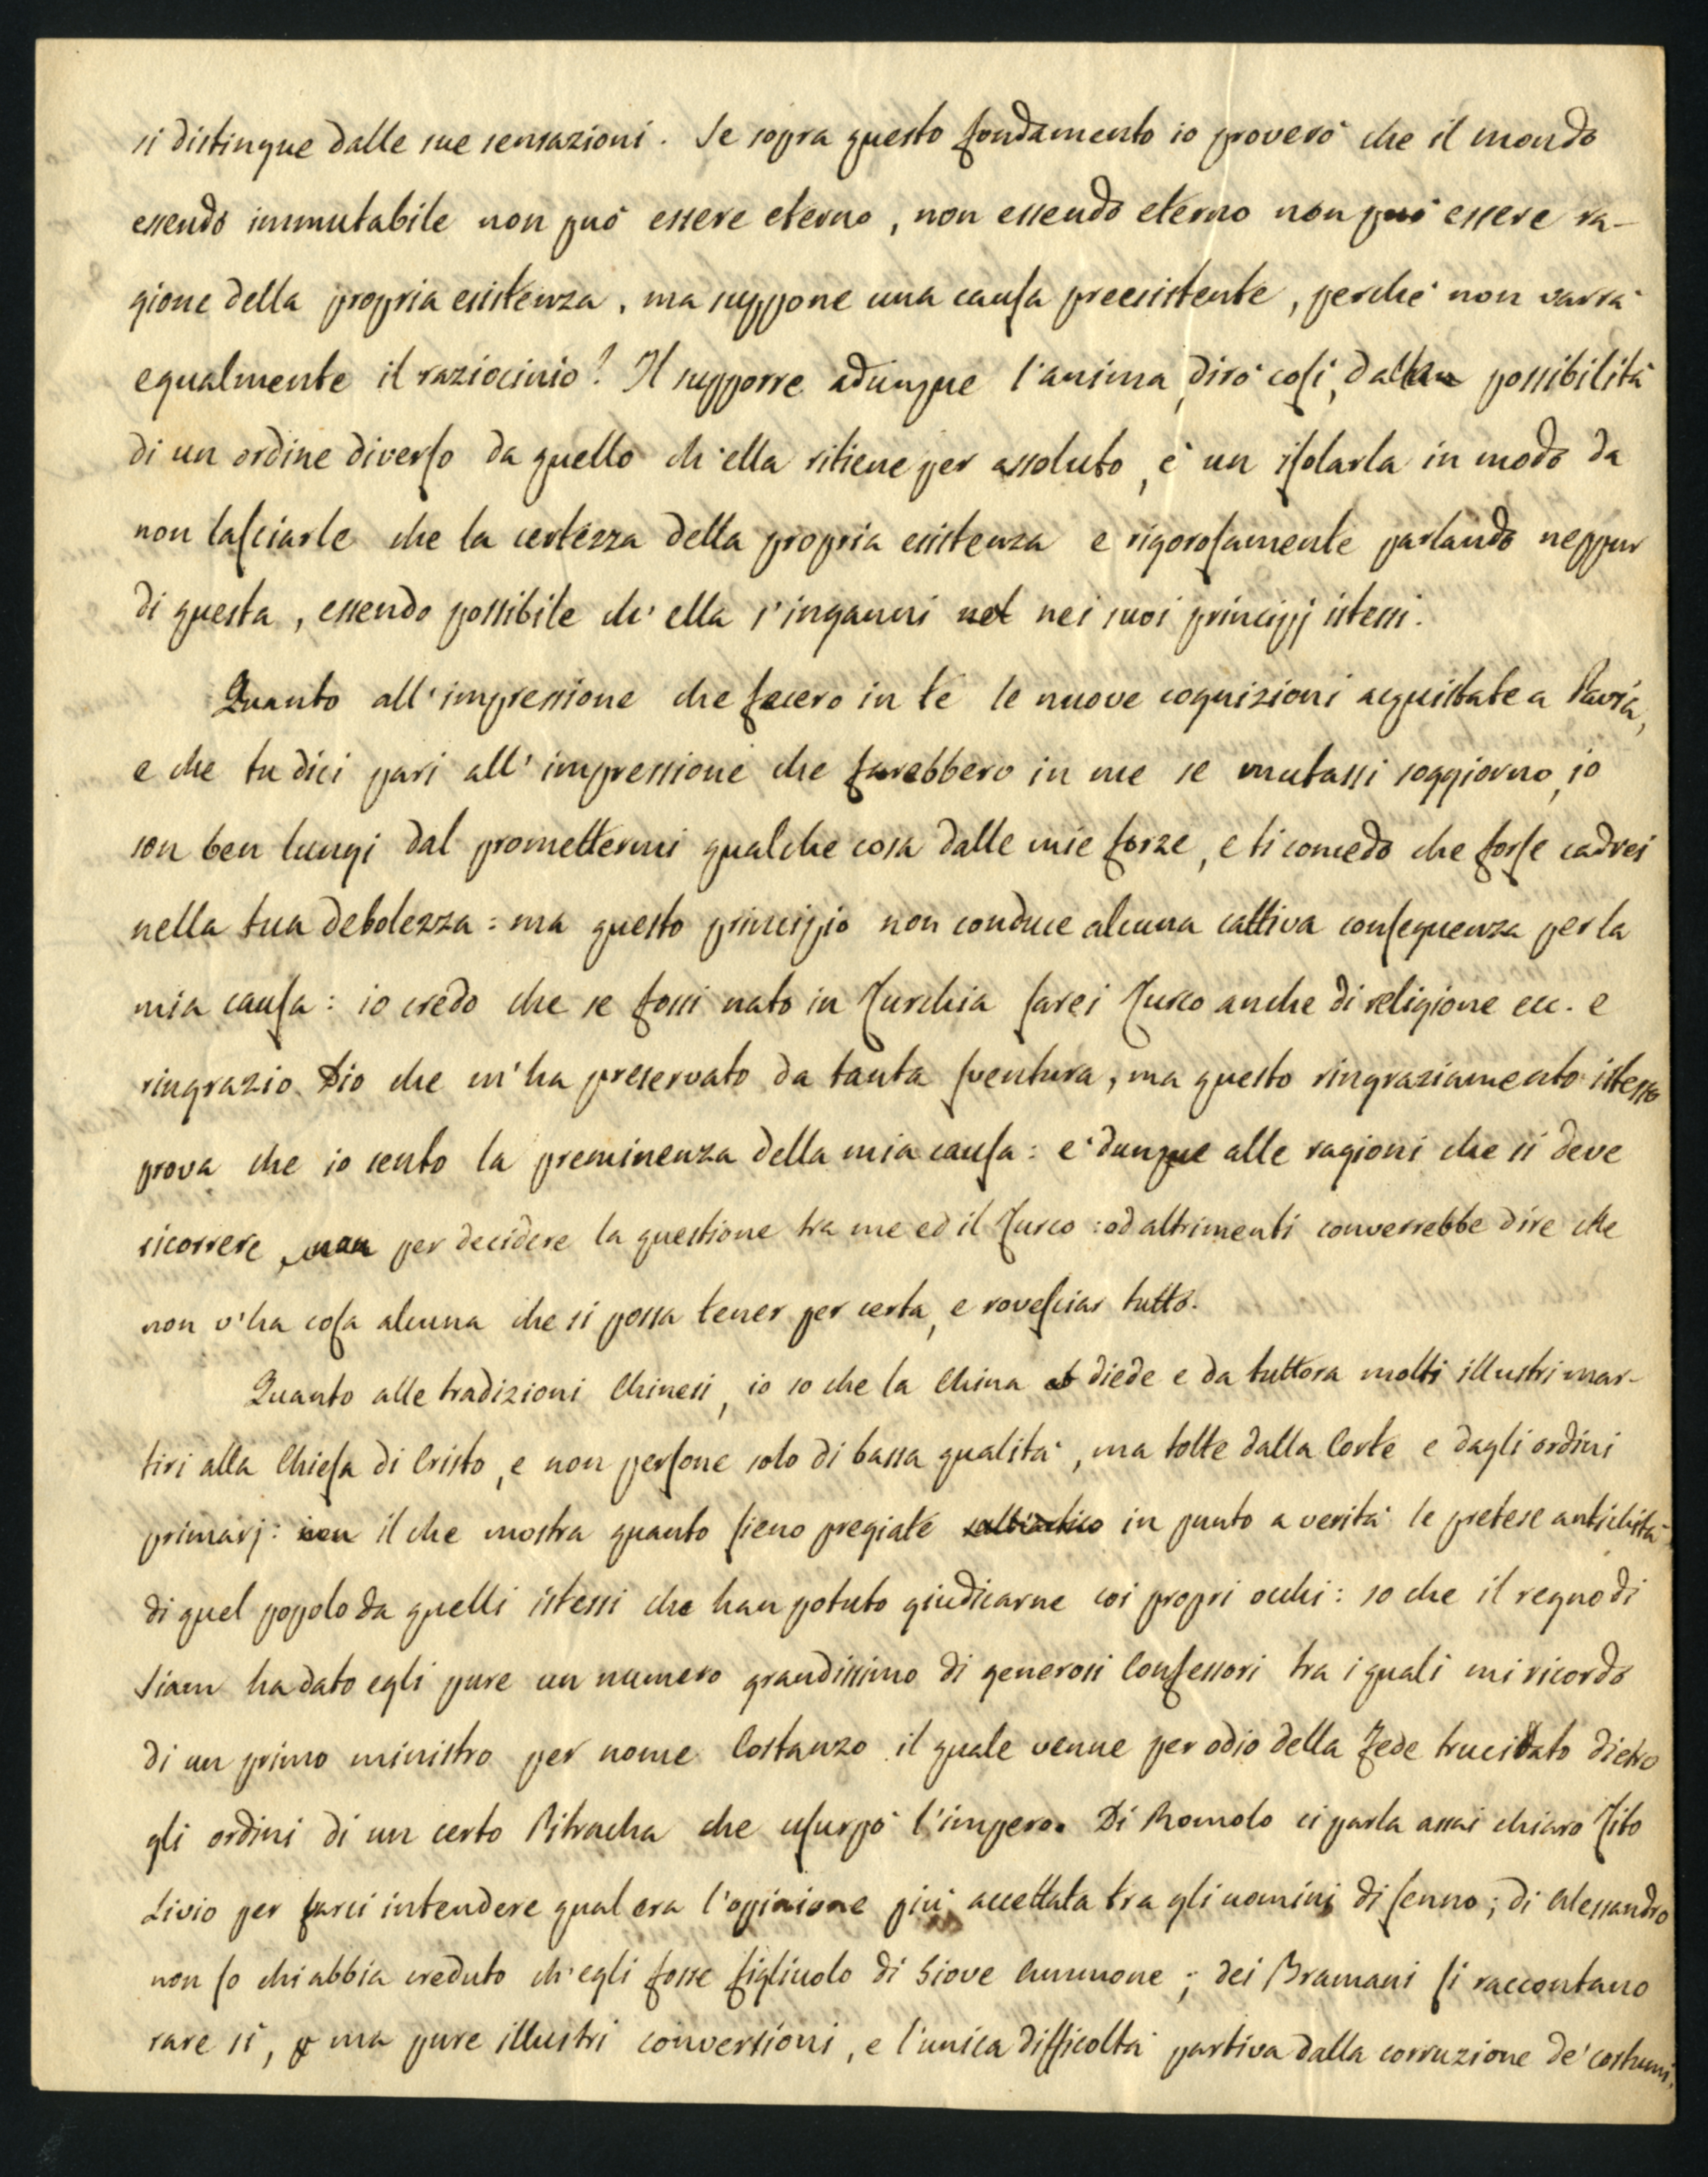 si distingue dalle sue sensazioni. Se sopra questo fondamento io proverò che il mondo
essendo immutabile non può essere eterno, non essendo eterno non può essere ra-
gione della propria esistenza, ma suppone una causa preesistente, perchè non varrà
egualmente il raziocinio? Il supporre adunque l'anima, dirò così, dalla possibilità
di un ordine diverso da quello ch'ella ritiene per assoluto, è un isolarla in modo da
non lasciarle che la certezza della propria esistenza e rigorosamente parlando neppur
di questa, essendo possibile ch'ella s'inganni nel nei suoi principj istessi.
Quanto all'impressione che fecero in te le nuove cognizioni acquistate a Pavia,
e che tu dici pari all'impressione che farebbero in me se mutassi soggiorno, io
son ben lungi dal promettermi qualche cosa dalle mie forze, e ti concedo che forse cadrei
nella tua debolezza: ma questo principio non conduce alcuna cattiva conseguenza per la
mia causa: io credo che se fossi nato in Turchia sarei Turco anche di religione ecc. e
ringrazio Dio che m'ha preservato da tanta sventura, ma questo ringraziamento istesso
prova che io sento la preminenza della mia causa: è dunque alle ragioni che si deve
ricorrere per decidere la questione tra me ed il Turco: od altrimenti converrebbe dire che
non v'ha cosa alcuna che si possa tener per certa, e rovesciar tutto.
Quanto alle tradizioni Chinesi, io so che la China diede e da tuttora molti illustri mar-
tiri alla Chiesa di Cristo, e non persone solo di bassa qualità, ma tolte dalla Corte e dagli ordini
primarj: il che mostra quanto sieno pregiate in punto a verità le pretese antichità
di quel popolo da quelli istessi che han potuto giudicarne coi propri occhi: so che il regno di
Siam ha dato egli pure un numero grandissimo di generosi Confessori tra i quali mi ricordo
di un primo ministro per nome Costanzo il quale venne per odio della Fede trucidato dietro
gli ordini di un certo Pitracha che usurpò l'impero. Di Romolo ci parla assai chiaro Tito
Livio per farci intendere qual era l'opinione più accettata tra gli uomini di senno; di Alessandro
non so chi abbia creduto ch'egli fosse figliuolo di Giove Ammone; dei Bramani si raccontano
rare sì, ma pure illustri conversioni, e l'unica difficoltà partiva dalla corruzione de' costumi,